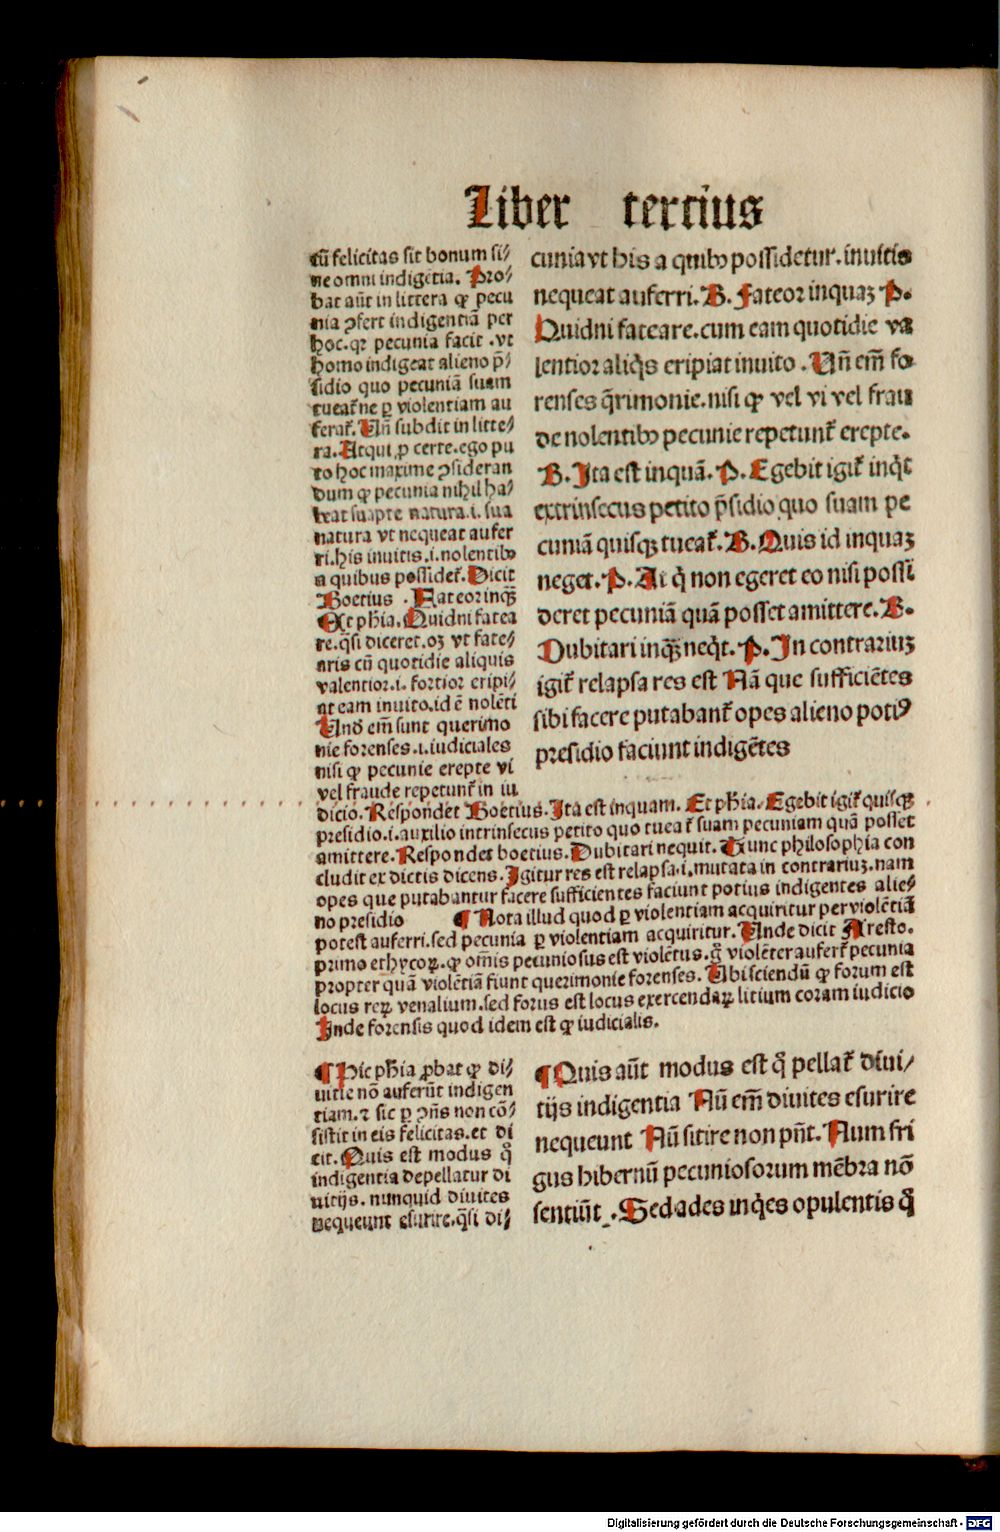 Liber tertius
cū felicitas sit bonum si⸗
ne omni indigētia. Pro⸗
bat aūt in littera ꝙ pecu
nia ↄfert indigentiā per
hoc. qꝛ pecunia facit . vt
homo indigeat alieno p̄⸗
sidio quo pecuniā suam
tueat̄ ne ꝑ violentiam au
ferat̄. Vn̄ subdit in litte⸗
ra. Atqui ꝓ certe. ego pu
to hoc maxime ↄsideran
dum ꝙ pecunia nihil ha⸗
beat suapte natura .i. sua
natura vt nequeat aufer
ri. his inuitis .i. nolentibꝰ
a quibus possidet̄. Dicit
Boetius . Fateor inqꝫ̄
Et ph̄ia. Quidni fatea
re. q̄si diceret. oꝫ vt fate⸗
aris cū quotidie aliquis
valentior .i. fortior eripi⸗
at eam inuito. id ē nolēti
Vnd̄ em̄ sunt querimo
nie forenses .i. iudiciales
nisi ꝙ pecunie erepte vi
vel fraude repetunt̄ in iu
cunia vt his a quibꝰ possidetur. inuitis
nequeat auferri. B. Fateor inquaꝫ P.
Quidni fateare. cum eam quotidie va
lentior aliq̄s eripiat inuito . Vn̄ em̄ fo
renses q̄rimonie. nisi ꝙ vel vi vel frau
de nolentibꝰ pecunie repetunt̄ erepte.
B. Ita est inquā. P. Egebit igit̄ inq̄t
extrinsecus petito p̄sidio quo suam pe
cuniā quisqꝫ tueat̄. B. Quis id inquaꝫ
neget. P. At q̄ non egeret eo nisi possi
deret pecuniā quā posset amittere. B.
Dubitari inqꝫ̄ neq̄t. P. In contrariuꝫ
igit̄ relapsa res est Nā que sufficiētes
sibi facere putabant̄ opes alieno potiꝰ
presidio faciunt indigētes
dicio. Respondet Boetius. Ita est inquam. Et ph̄ia. Egebit igit̄ quisqꝫ
presidio .i. auxilio intrinsecus petito quo tueat̄ suam pecuniam quā posset
amittere. Respondet boetius. Dubitari nequit. Tunc philosophia con
cludit ex dictis dicens. Igitur res est relapsa .i. mutata in contrariuꝫ. nam
opes que putabantur facere sufficientes faciunt potius indigentes alie⸗
no presidio ¶ Nota illud quod ꝑ violentiam acquiritur per violētiā
potest auferri. sed pecunia ꝑ violentiam acquiritur. Vnde dicit Aresto.
primo ethycoꝝ. ꝙ om̄is pecuniosus est violētus. g̊ violēter aufert̄ pecunia
propter quā violētiā fiunt querimonie forenses. Vbi sciendū ꝙ forum est
locus reꝝ venalium. sed forus est locus exercendaꝝ litium coram iudicio
Inde forensis quod idem est ꝙ iudicialis.
¶ Hic ph̄ia ꝓbat ꝙ di⸗
uitie nō auferūt indigen
tiam. ⁊ sic ꝑ ↄn̄s non cō⸗
sistit in eis felicitas. et di
cit. Quis est modus q̊
indigentia depellatur di
uitijs. nunquid diuites
nequeunt esurire. q̄si di⸗
¶ Quis aūt modus est q̊ pellat̄ diui⸗
tijs indigentia Nū em̄ diuites esurire
nequeunt Nū sitire non pn̄t. Num fri
gus hibernū pecuniosorum mēbra nō
sentiūt . Sed ades inq̄es opulentis q̊
Digitalisierung gefördert durch die Deutsche Forschungsgemeinschaft - DFG